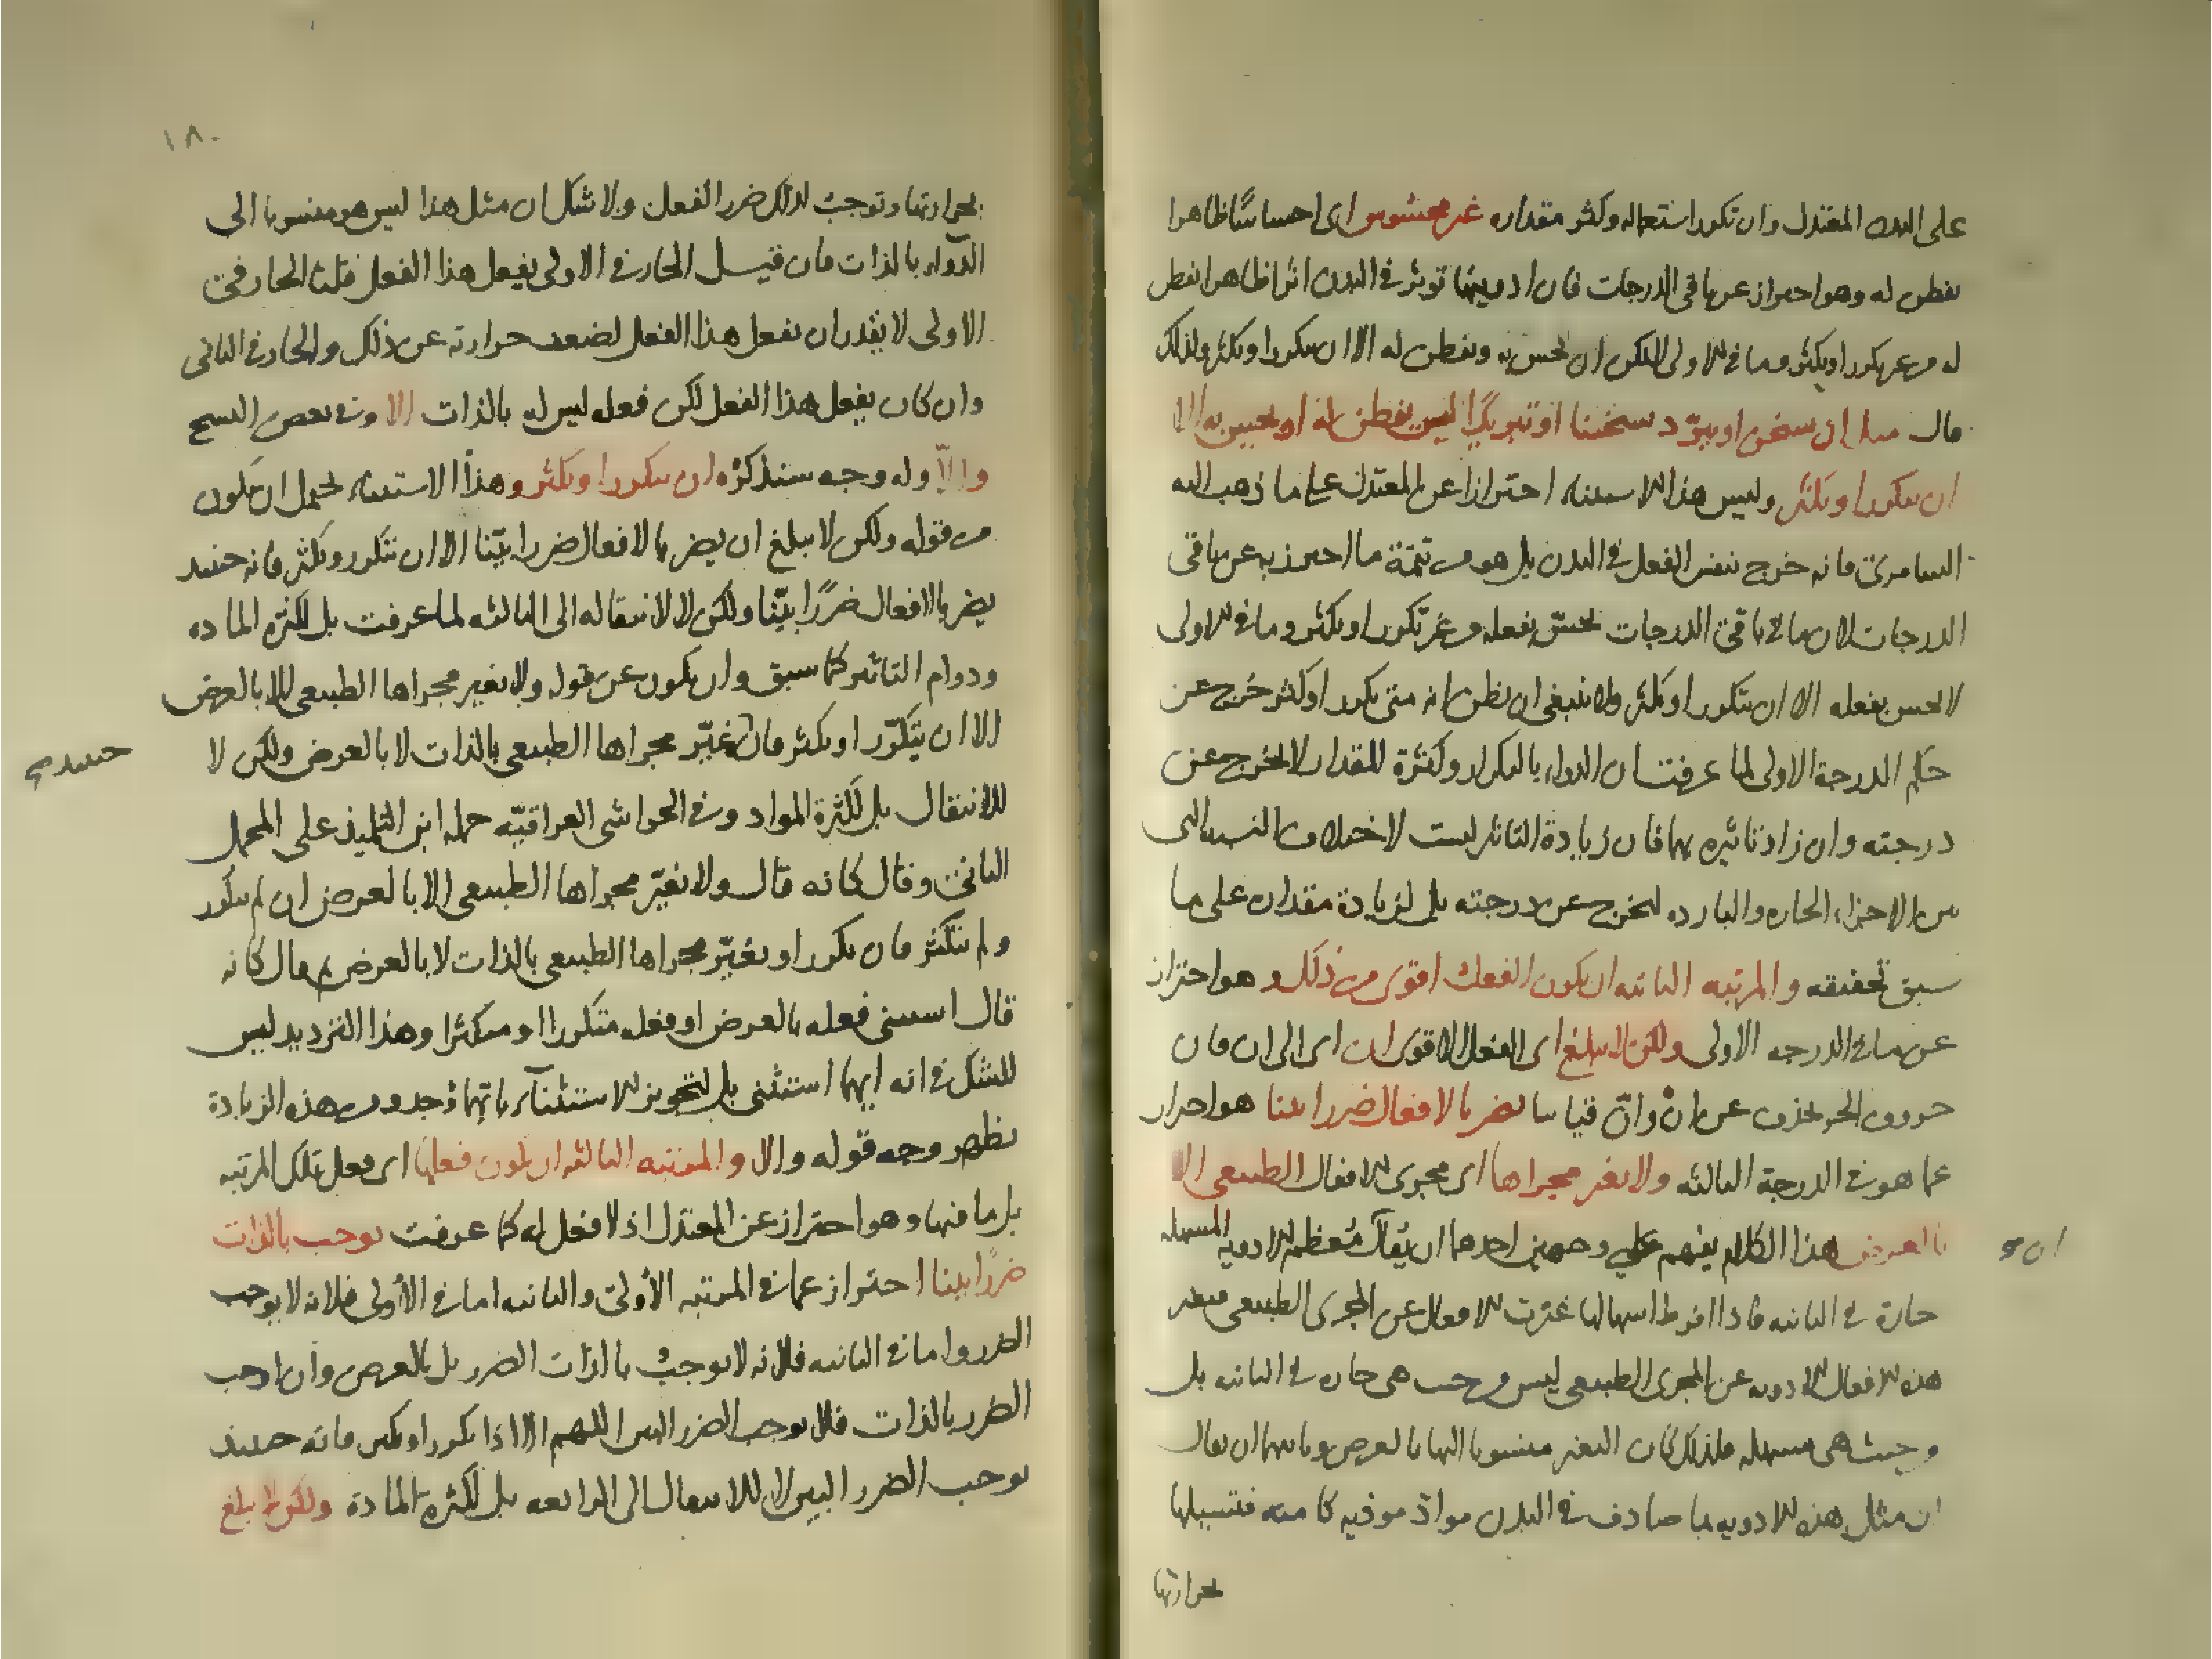 على البدن المعتدل وان تكرر استعماله وكثر مقداره غير محسوس اى احساسًا ظاهرا
يفطن له وهو احتراز عن باقى الدرجات فان ادويتها تؤثر فى البدن اثرا ظاهرا يفطن
له من غير تكرر او يكثر وما فى الاولى لا يمكن ان يحس به ويفطن له الا ان يتكرر او يكثر ولذلك
قال مثل ان يسخن او يبرّد تسخينا او تبريدًا ليس يفطن له او يحس به الا
ان يتكرر او يكثر وليس هذا الاستثناء احترازا عن المعتدل على ما ذهب اليه
السامرى فانه خرج بنفس الفعل فى البدن بل هو من تتمة ما احترز به عن باقى
الدرجات لان ما فى باقى الدرجات يحسّ بفعله من غير تكرر او يكثر وما فى الاولى
لا يحس بفعله الا ان يتكرر او يكثر ولا ينبغى ان يظن انه متى تكرر او كثر خرج عن
حكم الدرجة الاولى لما عرفت ان الدواء بالتكرار وكثرة المقدار لا يخرج عن
درجته وان زاد تاثيره بهما فان زيادة التاثير ليست لاختلاف النسبة التى
بين الاجزاء الحاره والبارده ليخرج عن درجته بل لزيادة مقداره على ما
سبق تحقيقه والمرتبه الثانيه ان يكون الفعل اقوى من ذلك وهو احتراز
عن ما فى الدرجه الاولى ولكن لا يبلغ اى الفعل الاقوى ان اى الى ان فان
حروف الجر تحذف عن انْ وانّ قياسا يضر بالافعال ضررا بينا هو احتراز
عما هو فى الدرجة الثالثه ولا يغير مجراها اى مجرى الافعال الطبيعى الا
بالعرض هذا الكلام يفهم على وجهين احدهما ان يقال مُعظم الادوية المسهله
ان
حارة فى الثانيه فاذا افرط اسهالها غيرت الافعال عن المجرى الطبيعى فيغير
هذه الافعال الادويه عن المجرى الطبيعى ليس من حيث هى حاره فى الثانيه بل
من حيث هى مسهله فلذلك كان التغير منسوبا اليها بالعرض وثانيهما ان يقال
ان مثل هذه الادويه لما صادف فى البدن موادّ موذيه كامنه فتسيلها
بحرارتها
١٨٠
بحرارتها وتوجب لذلك ضرر الفعل ولا شك ان مثل هذا ليس هو منسوبا الى
الدواء بالذات فان قيل الحار فى الاولى يفعل هذا الفعل قلنا الحار فى
الاولى لا يقدر ان يفعل هذا الفعل لضعف حرارته عن ذلك والحار فى الثانى
وان كان يفعل هذا الفعل لكن فعله ليس له بالذات الا وفى بعض النسخ
والاّ وله وجه سنذكره ان يتكرر او يكثر وهذا الاستثناء يحتمل ان يكون
من قوله ولكن لا يبلغ ان يضر بالافعال ضررا بيّنا الا ان يتكرر ويكثر فانه حينئذ
يضر بالافعال ضررًا بيّنا ولكن لا لانتقاله الى الثالثه لما عرفت بل لكثره الماده
ودوام التاثير كما سبق وان يكون عن قوله ولا يغير مجراها الطبيعى الا بالعرض
الا ان يتكرّر او يكثر فان يغيّر مجراها الطبيعى بالذات لا بالعرض ولكن لا
حينئذ صح
للانتقال بل لكثرة المواد وفى الحواشى العراقيّه حمله ابن التلميذ على المحمل
الثانى وقال كانه قال ولا يغيّر مجراها الطبيعى الا بالعرض ان لم يتكرر
ولم يتكثر فان تكرر او يغيّر مجراها الطبيعى بالذات لا بالعرض ثم قال كانه
قال استثنى فعله بالعرض او فعله متكررا او متكثرا وهذا الترديد ليس
للشك فى انه ايهما استثنى بل لتجويز الاستثناء بايّهما وُجد ومن هذه الزيادة
يظهر وجه قوله والا والمرتبه الثالثه ان يكون فعلها اى فعل تلك المرتبه
بل ما فيها وهو احتراز عن المعتدل اذ لا فعل له كما عرفت يوجب بالذات
ضررًا بينا احتراز عما فى المرتبه الأولى والثانيه اما فى الأولى فلانه لا يوجب
الضرر واما فى الثانيه فلانه لا يوجب بالذات الضرر بل بالعرض وان اوجب
الضرر بالذات فلا يوجب الضرر البين اللهم الا اذا تكرر او يكثر فانه حينئذ
يوجب الضرر البين لا للانتقال الى الرابعه بل لكثرة المادة ولكن لا يبلغ